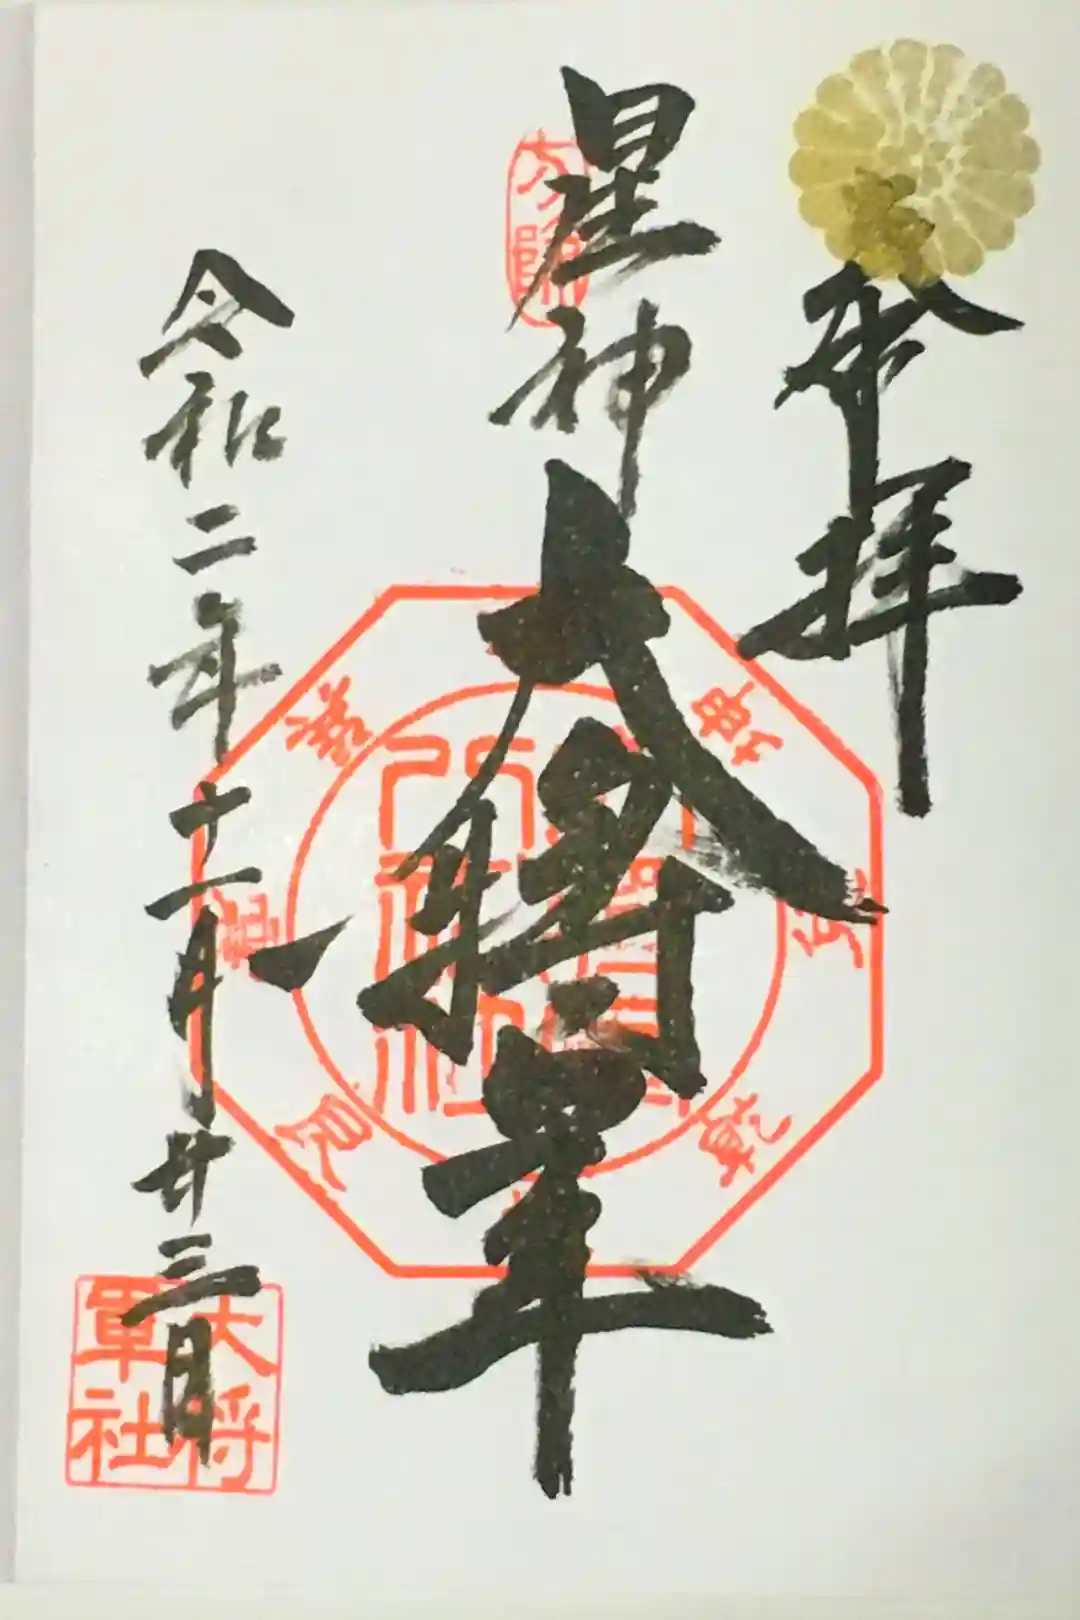 奉拝
星神
大将軍
令和二年十一月廿三日
方除
大将
軍社
巽
乾
艮